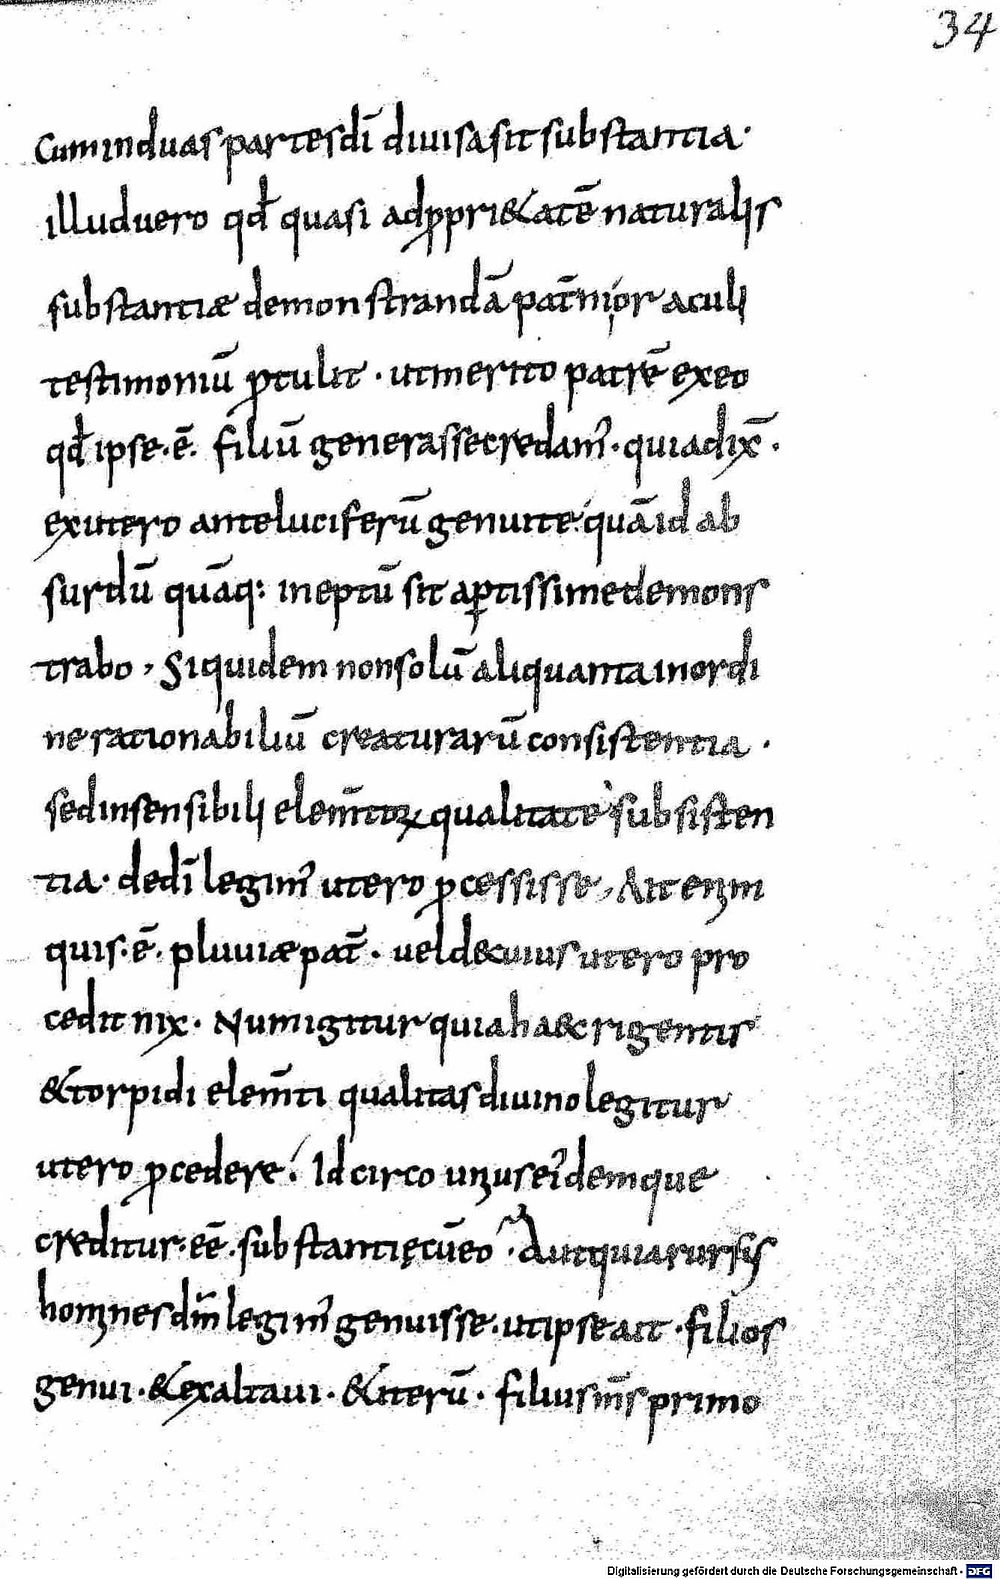 34
Cum induas partes dī diuisa sit substantia·
illud uero qđ quasi ad ꝓpri&atē naturalis
substantiæ demonstrandā pat̄ni oraculi
testimoniū ꝓtulit · ut merito patrē ex eo
qđ ipse·ē· filiū generasse credam̓· quia dix̄·
ex utero ante luciferū genui te· quā id ab
surdū quāq: ineptū sit aꝑtissime demons
trabo, Siquidem non solū aliquanta in ordi
ne rationabiliū creaturarū consistentia ·
sed insensibili elem̄toꝝ qualitate subsisten
tia· de dī legim̓ utero ꝓcessisse, Ait enim
quis·ē· pluuiæ pat̄· uel de cuius utero pro
cedit nix· Num igitur quia haec rigentis
& torpidi elem̄ti qualitas diuino legitur
utero ꝓcedere! Idcirco unius ei̓demque
creditur·eē·substantię cū eo·Aut quia rursis
homines dm̄ legim̓ genuisse·ut ipse ait·filios
genui·& exaltaui·& iterū· filius m̄s primo
Digitalisierung gefördert durch die Deutsche Forschungsgemeinschaft - DFG